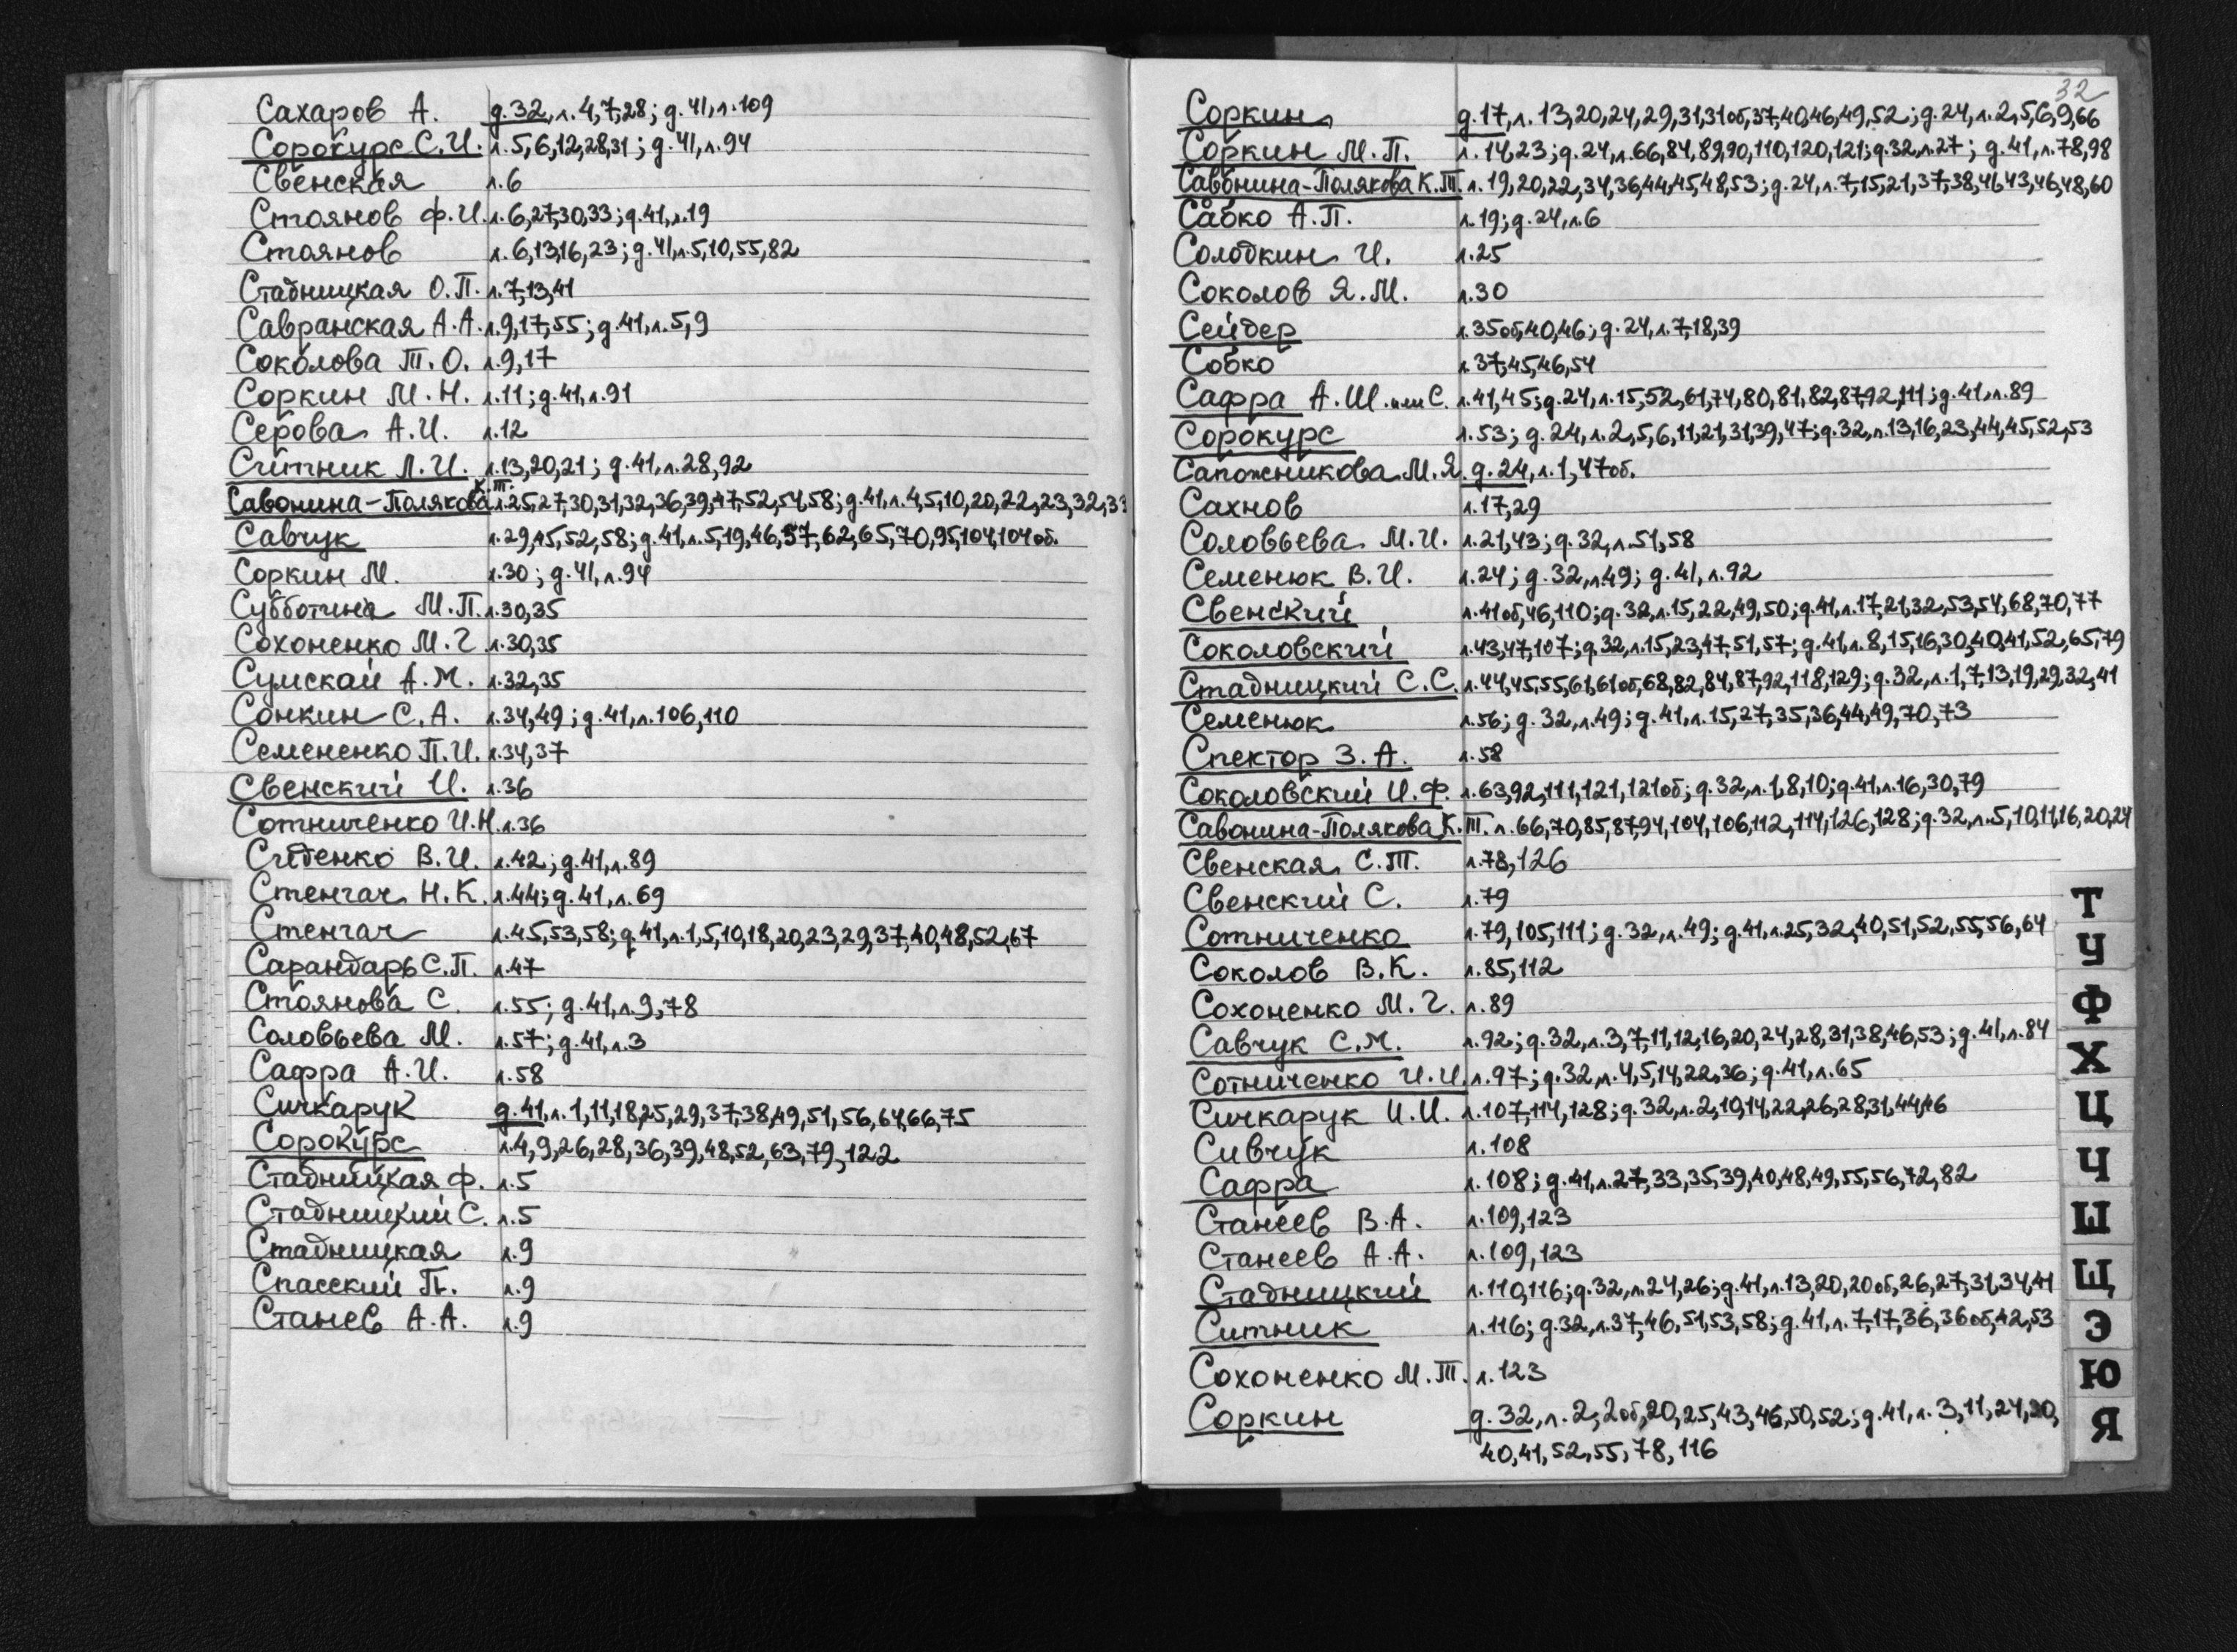 Сахаров А. д.32, л.4,7,28; д.41, л.109
Сорокурс С.И. л.5,6,12,28,31; д.41, л.94
Свенская л.6
Стоянов Ф.И. л.6,27,30,33; д.41, л.19
Стоянов л.6,13,16,23; д.41, л.5,10,55,82
Стадницкая О.П. л.7,13,41
Савранская А.А. л.9,17,55; д.41, л.5,9
Соколова Т.О. л.9,17
Соркин М.Н. л.11; д.41, л.91
Серова А.И. л.12
Ситник Л.И. л.13,20,21; д.41, л.28,92
Савонина-Полякова К.Т. л.25,27,30,31,32,36,39,47,52,54,58; д.41, л.4,5,10,20,22,23,32,33
Савчук л.29,45,52,58; д.41, л.5,19,46,57,62,65,70,95,104,104об.
Соркин М. л.30; д.41, л.94
Субботина М.П. л.30,35
Сохоненко М.Г. л.30,35
Сумской А.М. л.32,35
Сонкин С.А. л.34,49; д.41, л.106,110
Семененко П.И. л.34,37
Свенский И. л.36
Сотниченко И.Н. л.36
Сиденко В.И. л.42; д.41, л.89
Стенгач Н.К. л.44; д.41, л.69
Стенгач л.45,53,58; д.41, л.1,5,10,18,20,23,29,37,40,48,52,67
Сарандарь С.П. л.47
Стоянова С. л.55; д.41, л.9,78
Соловьева М. л.57; д.41, л.3
Сафра А.И. л.58
Сичкарук д.41, л.1,11,18,25,29,37,38,49,51,56,64,66,75
Сорокурс л.4,9,26,28,36,39,48,52,63,79,122
Стадницкая Ф. л.5
Стадницкий С. л.5
Стадницкая л.9
Спасский П. л.9
Станев А.А. л.9
32
Соркин д.17, л.13,20,24,29,31,31об,37,40,46,49,52; д.24, л.2,5,6,9,66
Соркин М.П. л.14,23; д.24, л.66,84,89,90,110,120,121; д.32, л.27; д.41, л.78,98
Савонина-Полякова К.Т. л.19,20,22,34,36,44,45,48,53; д.24, л.7,15,21,37,38,41,43,46,48,60
Сабко А.П. л.19; д.24, л.6
Солодкин И. л.25
Соколов Я.М. л.30
Сейдер л.35об,40,46; д.24, л.7,18,39
Собко л.37,45,46,54
Сафра А.Ш. или С. л.41,45; д.24, л.15,52,61,74,80,81,82,87,92,111; д.41, л.89
Сорокурс л.53; д.24, л.2,5,6,11,21,31,39,47; д.32, л.13,16,23,44,45,52,53
Сапожникова М.Я. д.24, л.1,47об.
Сахнов л.17,29
Соловьева М.И. л.21,43; д.32, л.51,58
Семенюк В.И. л.24; д.32, л.49; д.41, л.92
Свенский л.41об,46,110; д.32, л.15,22,49,50; д.41, л.17,21,32,53,54,68,70,77
Соколовский л.43,47,107; д.32, л.15,23,47,51,57; д.41, л.8,15,16,30,40,41,52,65,79
Стадницкий С.С. л.44,45,55,61,61об,68,82,84,87,92,118,129; д.32, л.1,7,13,19,29,32,41
Семенюк л.56; д.32, л.49; д.41, л.15,27,35,36,44,49,70,73
Спектор З.А. л.58
Соколовский И.Ф. л.63,92,111,121,121об; д.32, л.1,8,10; д.41, л.16,30,79
Савонина-Полякова К.Т. л.66,70,85,87,94,104,106,112,114,126,128; д.32, л.5,10,11,16,20,24
Свенская С.Т. л.78,126
Свенский С. л.79
Сотниченко л.79,105,111; д.32, л.49; д.41, л.25,32,40,51,52,55,56,64
Соколов В.К. л.85,112
Сохоненко М.Г. л.89
Савчук С.М. л.92; д.32, л.3,7,11,12,16,20,24,28,31,38,46,53; д.41, л.84
Сотниченко И.И. л.97; д.32, л.4,5,14,22,36; д.41, л.65
Сичкарук И.И. л.107,114,128; д.32, л.2,10,14,22,26,28,31,44,46
Сивчук л.108
Сафра л.108; д.41, л.27,33,35,39,40,48,49,55,56,72,82
Станеев В.А. л.109,123
Станеев А.А. л.109,123
Стадницкий л.110,116; д.32, л.24,26; д.41, л.13,20,20об,26,27,31,34,41
Ситник л.116; д.32, л.37,46,51,53,58; д.41, л.7,17,36,36об,42,53
Сохоненко М.Т. л.123
Соркин д.32, л.2,2об,20,25,43,46,50,52; д.41, л.3,11,24,30,
40,41,52,55,78,116
Т
У
Ф
Х
Ц
Ч
Ш
Щ
Э
Ю
Я